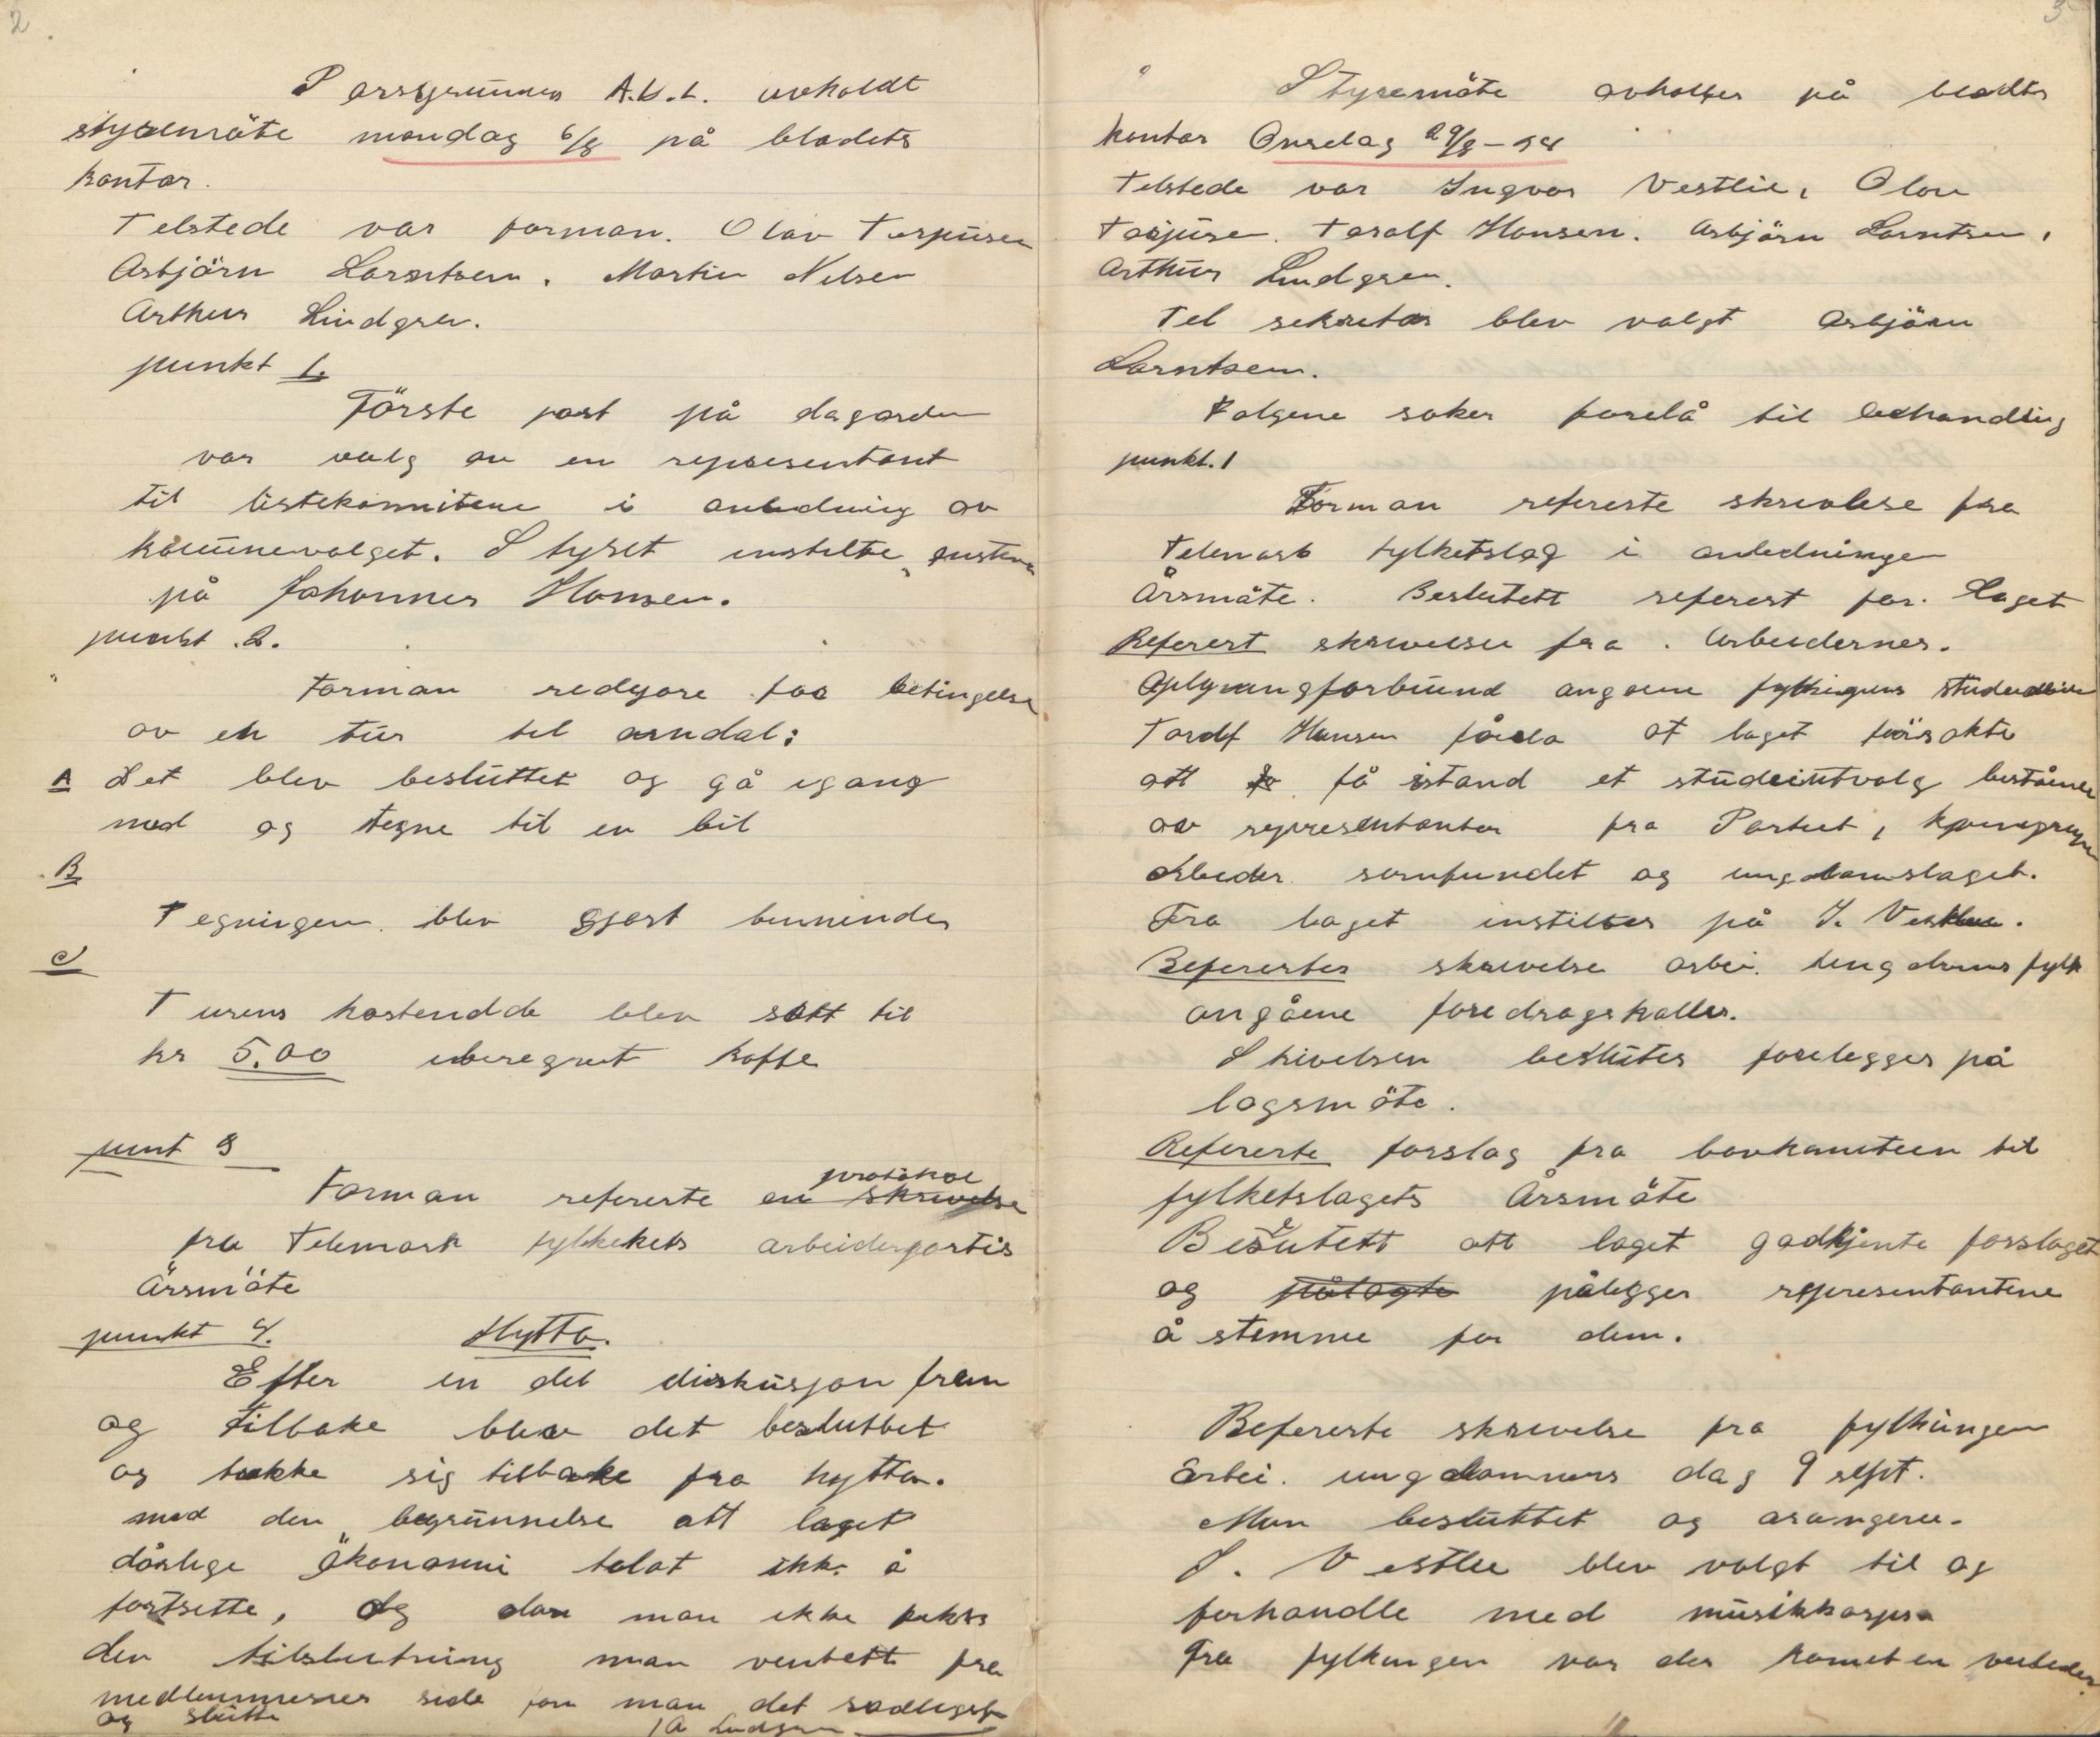 2.
Porsgrunnen A.U.L. avholdt
styremöte mandag 6/8 på bladets
kontor.
Telstede var forman. Olav Torjusen
Asbjörn Larntsen. Martin Nelsen
Arthur Lindgren.
punkt 1.
Förste post på dagorden
var valg av en representant
til listekomniteen i anledning av
komunevalget. Styret instilte
på Johannes Hansen.
punkt .2.
Forman redgore for betingelse
av en tur tel arndal:
A Det blev besluttet og gå igang
med og tegne til en bil
B
Tegningen. blev gjort binnende
C
Turens kostendde blev satt til
kr 5.00 uberegnet kaffe
punt 3
protokol
Forman refererte en skrivelse
fra Telemark fylkekets arbeiderpartis
Årsmöte
punkt 4. Hytta.
Efter en del diskusjon frem
og tilbake blev det besluttet
og trekke sig tilbake fra hytta.
med den begrunnelse att laget
dårlige ökonomi tolat ikke å
fortsette, og da man ikke fikk
den tilslutning man ventett fra
medlemmernes side fan man det
og slutte / A Lindgren
3
Styremöte avholtes på bladts
kontor Onsdag 29/8-34
Telstede var Ingvar Vestlie, Olav
Torjusen. Toralf Hansen. Asbjörn Larntsen,
Arthur Lindgren.
Tel sekretær blev valgt Asbjörn
Larntsen.
Følgene saker forelå til behandling
punkt. 1
Forman refererte skrivelse fra
Telemark fylketslag i anledningen
Årsmöte. Beslutett referert for. Laget
Referert skrivelse fra . Arbeidernes.
Oplysningforbund angåene fylkingens
Toralf Hansen att laget forsøkte
att få istand et studieutvalg beståene
av representanter fra Partiet,
Arbeider. samfundet og ungdomslaget.
Fra laget instilles på I. Vestlie.
Refererter skrivelse arbei. ungdoms fylk
angåene foredragskaller.
Skrivelsen beslutes forelegges på
lagsmöte.
Refererte forslag fra lovkomiteen til
fylketslagets Årsmöte
Beslutett att laget godkjente forslaget
og pålagte pålegger representantene
å stemme for dem.
Refererte skrivelse fra fylkingen
Arbei. ungdommers dag 9 sept.
Man besluttet og arangere.
I. Vestlie blev valgt til og
forhandle med musikkorpse
Fra fylkingen var der komet en